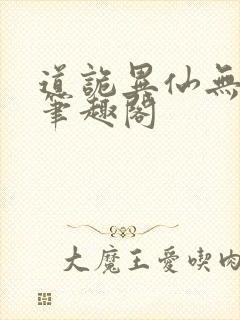 道詭異仙無
筆趣閣
大魔王愛喫肉